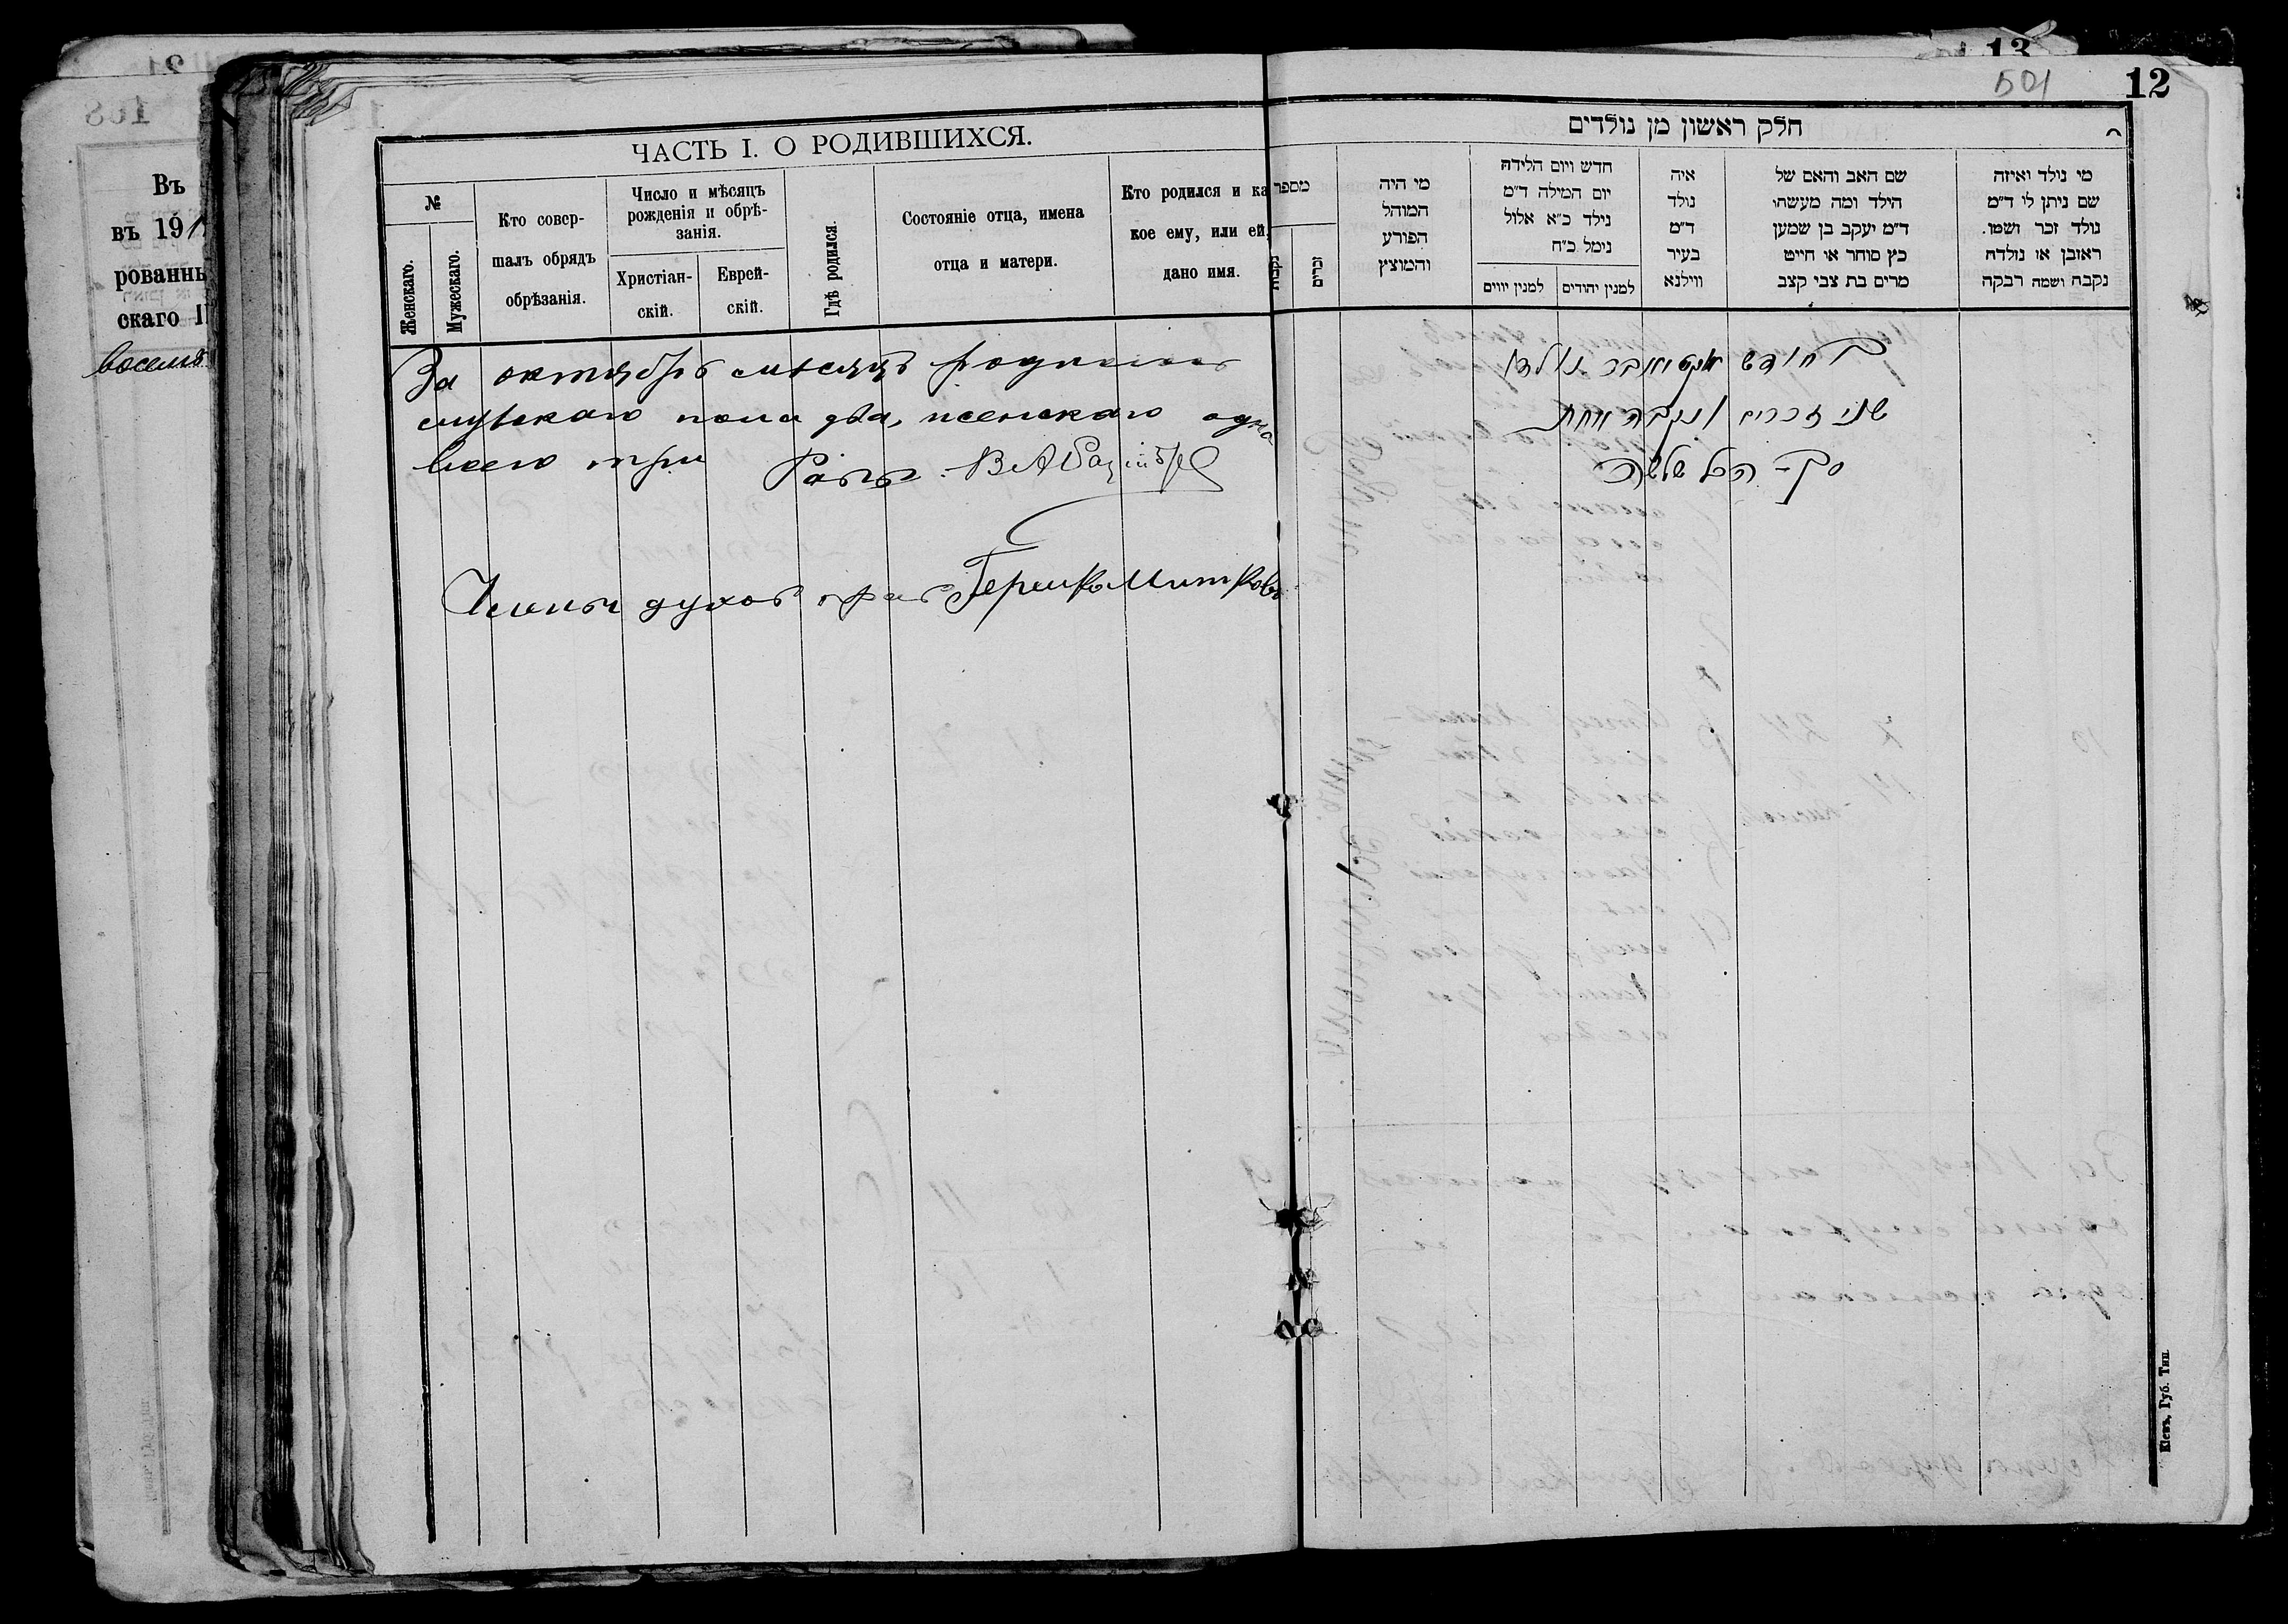 12
501
13
Въ
въ 191
рованны
скаго
восемь
ЧАСТЬ I. О РОДИВШИХСЯ.
№
Женскаго.
Мужескаго.
Кто совер-
шалъ обрядъ
обрѣзанія.
Число и мѣсяцъ
рожденія и обрѣ-
занія.
Христіан-
скій.
Еврей-
скій.
Гдѣ родился.
Состояніе отца, имена
отца и матери.
Кто родился и ка
кое ему, или ей,
дано имя.
За октябрь мѣсяцъ родилось
мужскаго пола два, женскаго одна
всего три Равв.
Членъ духов прав Гершко Митков
חלק ראשון מן נולדים
מי נולד ואיזה
שם ניתן לו ד"מ
נולד זכר ושמו.
ראובן או נולדה
נקבה ושמה רבקה
שם האב והאם של
הילד ומה מעשהו
ד"מ יעקב בן שמען
כץ סוחר או חייט
מרים בת צבי קצב
איה
נולד
ד"מ
בעיר
ווילנא
חדש ויום הלידה
יום המילה ד"מ
נילד כ"א אלול
נימל כ"ח
למנין יהודים
למנין יווים
מי היה
המוהל
הפורע
והמוצץ
מספר
זכרים
נקבות
בחודש אקטיאבר נולדו
שני זכרים ונקבה אחת
סך - הכל שלשה
Кіевъ, Губ. Тип.